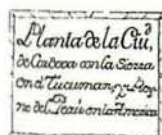 Planta de la Ciu.d
de Cordova con la Sierra
en el Tucuman, y Rey
no del Perú en la America